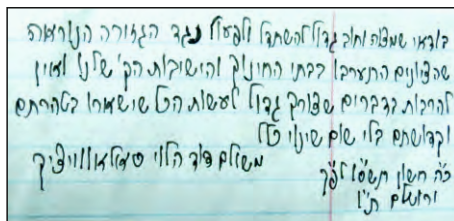 בודאי שמצוה וחוב גדול להשתדל ולפעול נגד הגזירה הנוראה
שהציונים התערבו בבתי החינוך והישיבות הק' שלנו ואין
להרבות בדברים שצורך גדול לעשות הכל שישארו בטהרתם
וקדושתם בלי שום שינוי כלל
משולם דוד הלוי סאלאווייציק
כ"ה חשון תשס"ו לפ"ק
ירושלים ת"ו